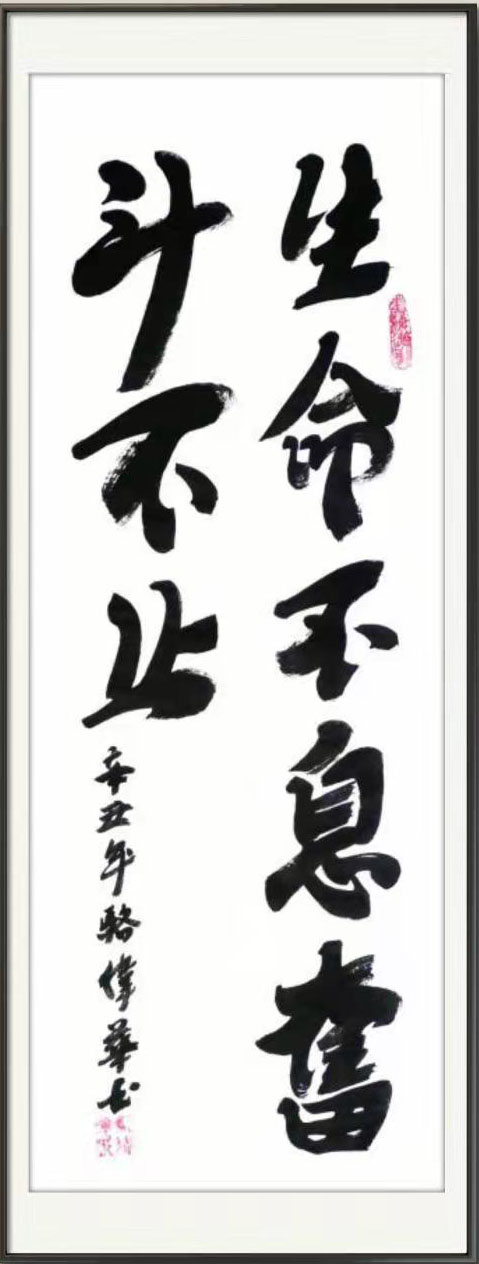 生命不息奮
斗不止
辛丑年駱偉華书